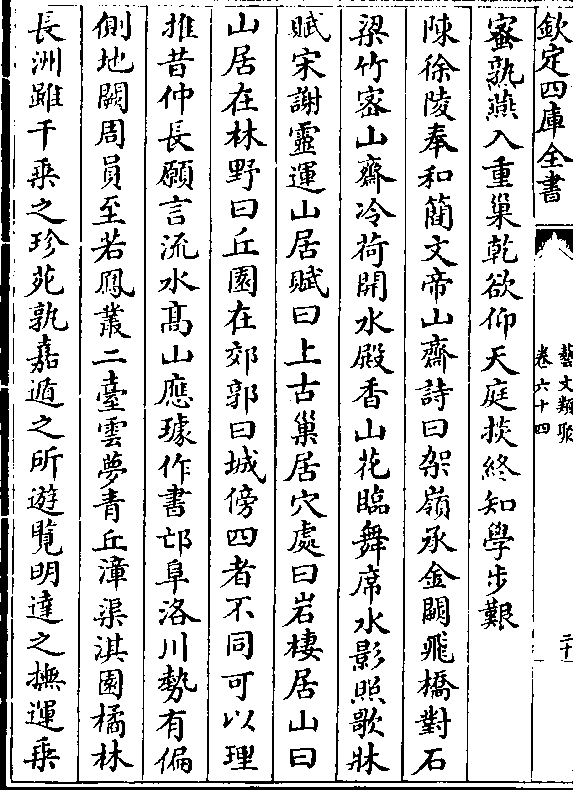 欽定四庫全書
藝文類聚
卷六十四
二十
蜜孰燕入重巢乾欲仰天庭掞終知學步艱
陳徐陵奉和簡文帝山齋詩曰架嶺承金闕飛橋對石
梁竹密山齋冷荷開水殿香山花臨舞席水影照歌牀
賦宋謝靈運山居賦曰上古巢居穴處曰岩棲居山曰
山居在林野曰丘園在郊郭曰城傍四者不同可以理
推昔仲長願言流水髙山應璩作書邙阜洛川勢有偏
側地闕周員至若鳳叢二臺雲夢青丘漳渠淇園橘林
長洲雖千乘之珍苑孰嘉遁之所遊覧明達之撫運乗